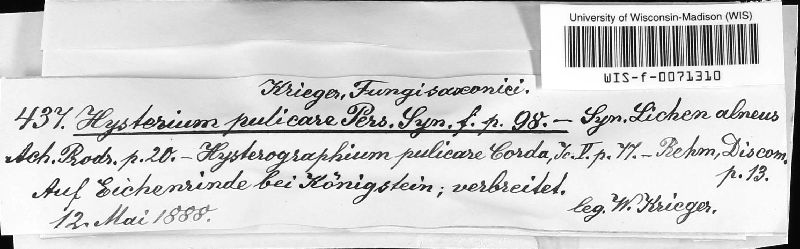 University of Wisconsin-Madison (WIS)
WIS-f-0071310
Krieger, Fungi saxonici.
437. Hysterium pulicare Pers. Syn. f. p. 98. – Syn. Lichen alneus
Ach. Prodr. p. 20. – Hysterographium pulicare Corda, Ic. V. p. 77. – Rehm, Discom.
p. 13.
Auf Eichenrinde bei Königstein; verbreitet.
12. Mai 1888.
leg. W. Krieger.